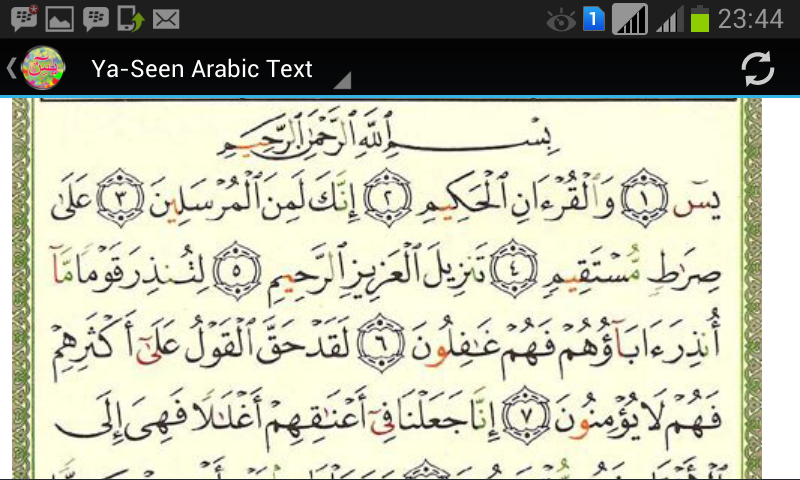 1
23:44
Ya-Seen Arabic Text
بِسْمِ ٱللَّهِ ٱلرَّحْمَٰنِ ٱلرَّحِيمِ
يسٓ ١ وَٱلْقُرْءَانِ ٱلْحَكِيمِ ٢ إِنَّكَ لَمِنَ ٱلْمُرْسَلِينَ ٣ عَلَىٰ
صِرَٰطٍ مُّسْتَقِيمٍ ٤ تَنزِيلَ ٱلْعَزِيزِ ٱلرَّحِيمِ ٥ لِتُنذِرَ قَوْمًا مَّآ
أُنذِرَ ءَابَآؤُهُمْ فَهُمْ غَٰفِلُونَ ٦ لَقَدْ حَقَّ ٱلْقَوْلُ عَلَىٰٓ أَكْثَرِهِمْ
فَهُمْ لَا يُؤْمِنُونَ ٧ إِنَّا جَعَلْنَا فِىٓ أَعْنَٰقِهِمْ أَغْلَٰلًا فَهِىَ إِلَى